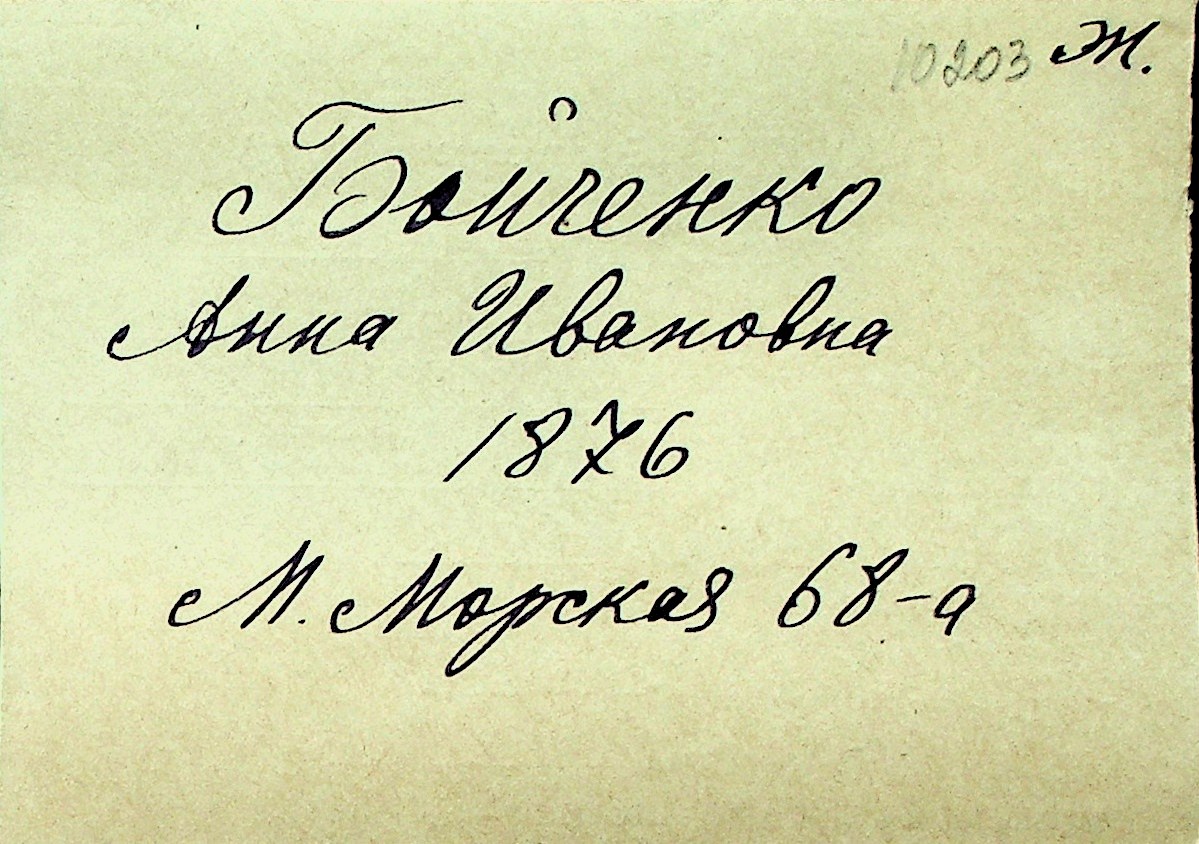 10203 Ж.
Бойченко
Анна Ивановна
1876
М. Морская 68-а